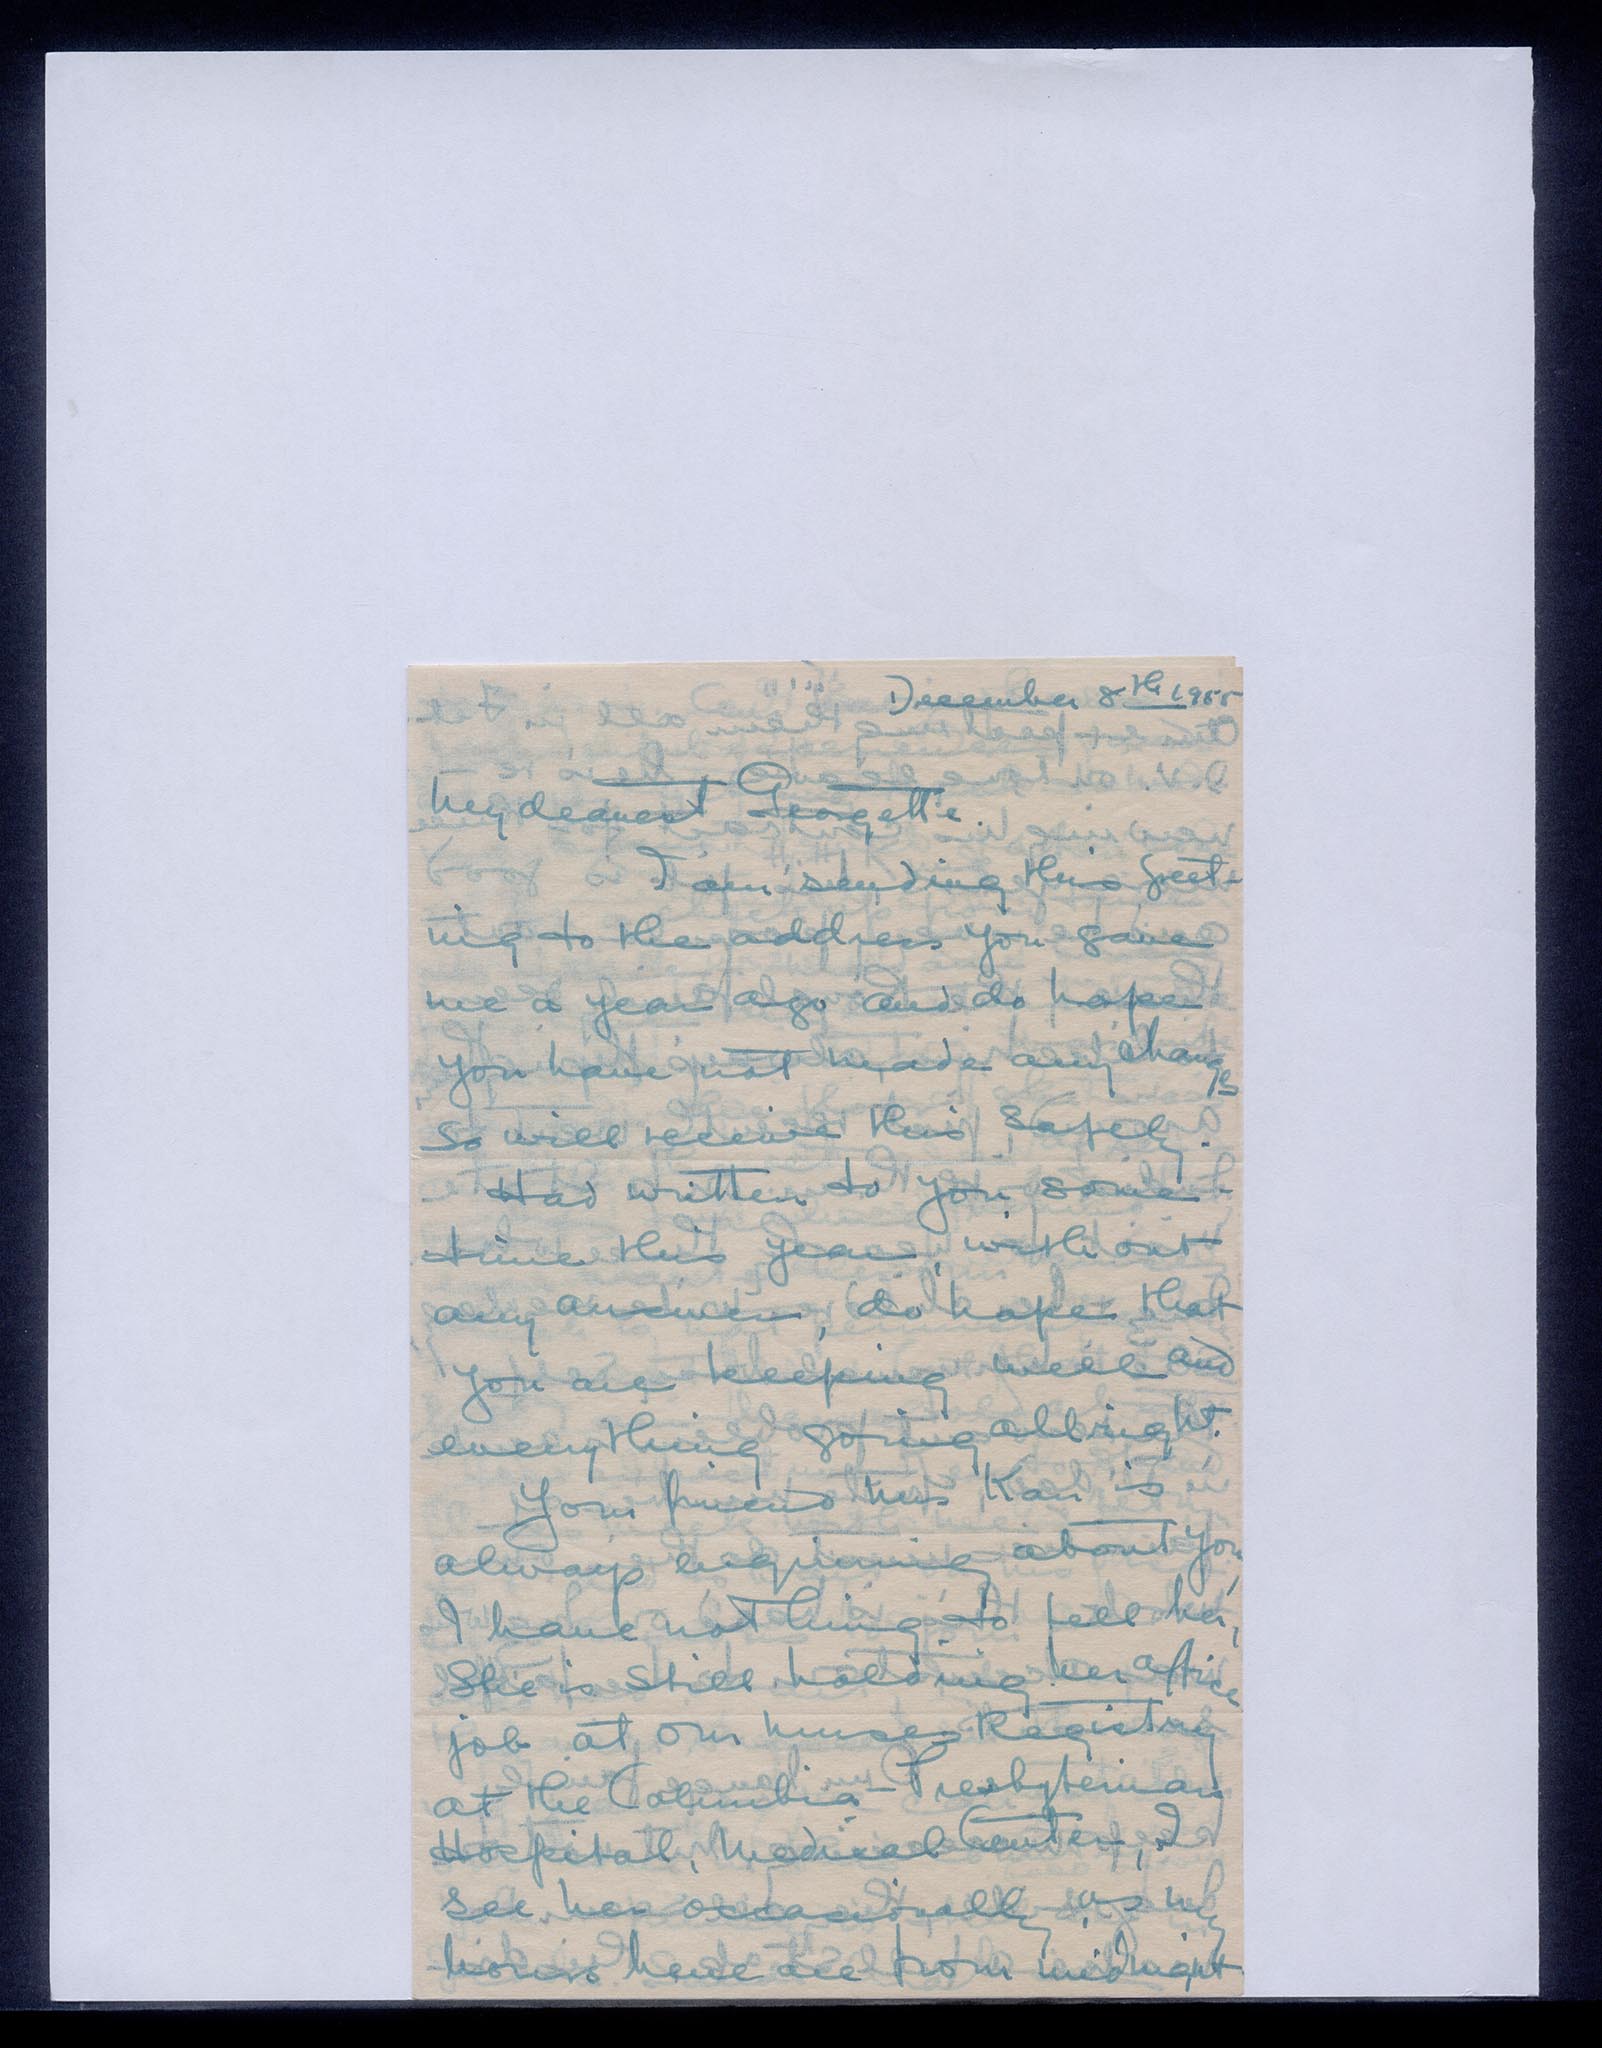 December 8th 1955
My dearest Georgette.
I am sending this greet-
ing to the address you gave
me a year ago and do hope
you have not made any changes
so will receive this safely.
Had written to you some-
time this year, without
any answer, do hope that
you are keeping well and
everything going allright.
Your friend Mrs Karr is
always enquiring about you,
I have nothing to tell her,
She is still holding her office
job at our nurses Registry
at the Columbia-Presbyterian
Hospital, Medical Center, I
see her occasionally as my
hours here are from midnight